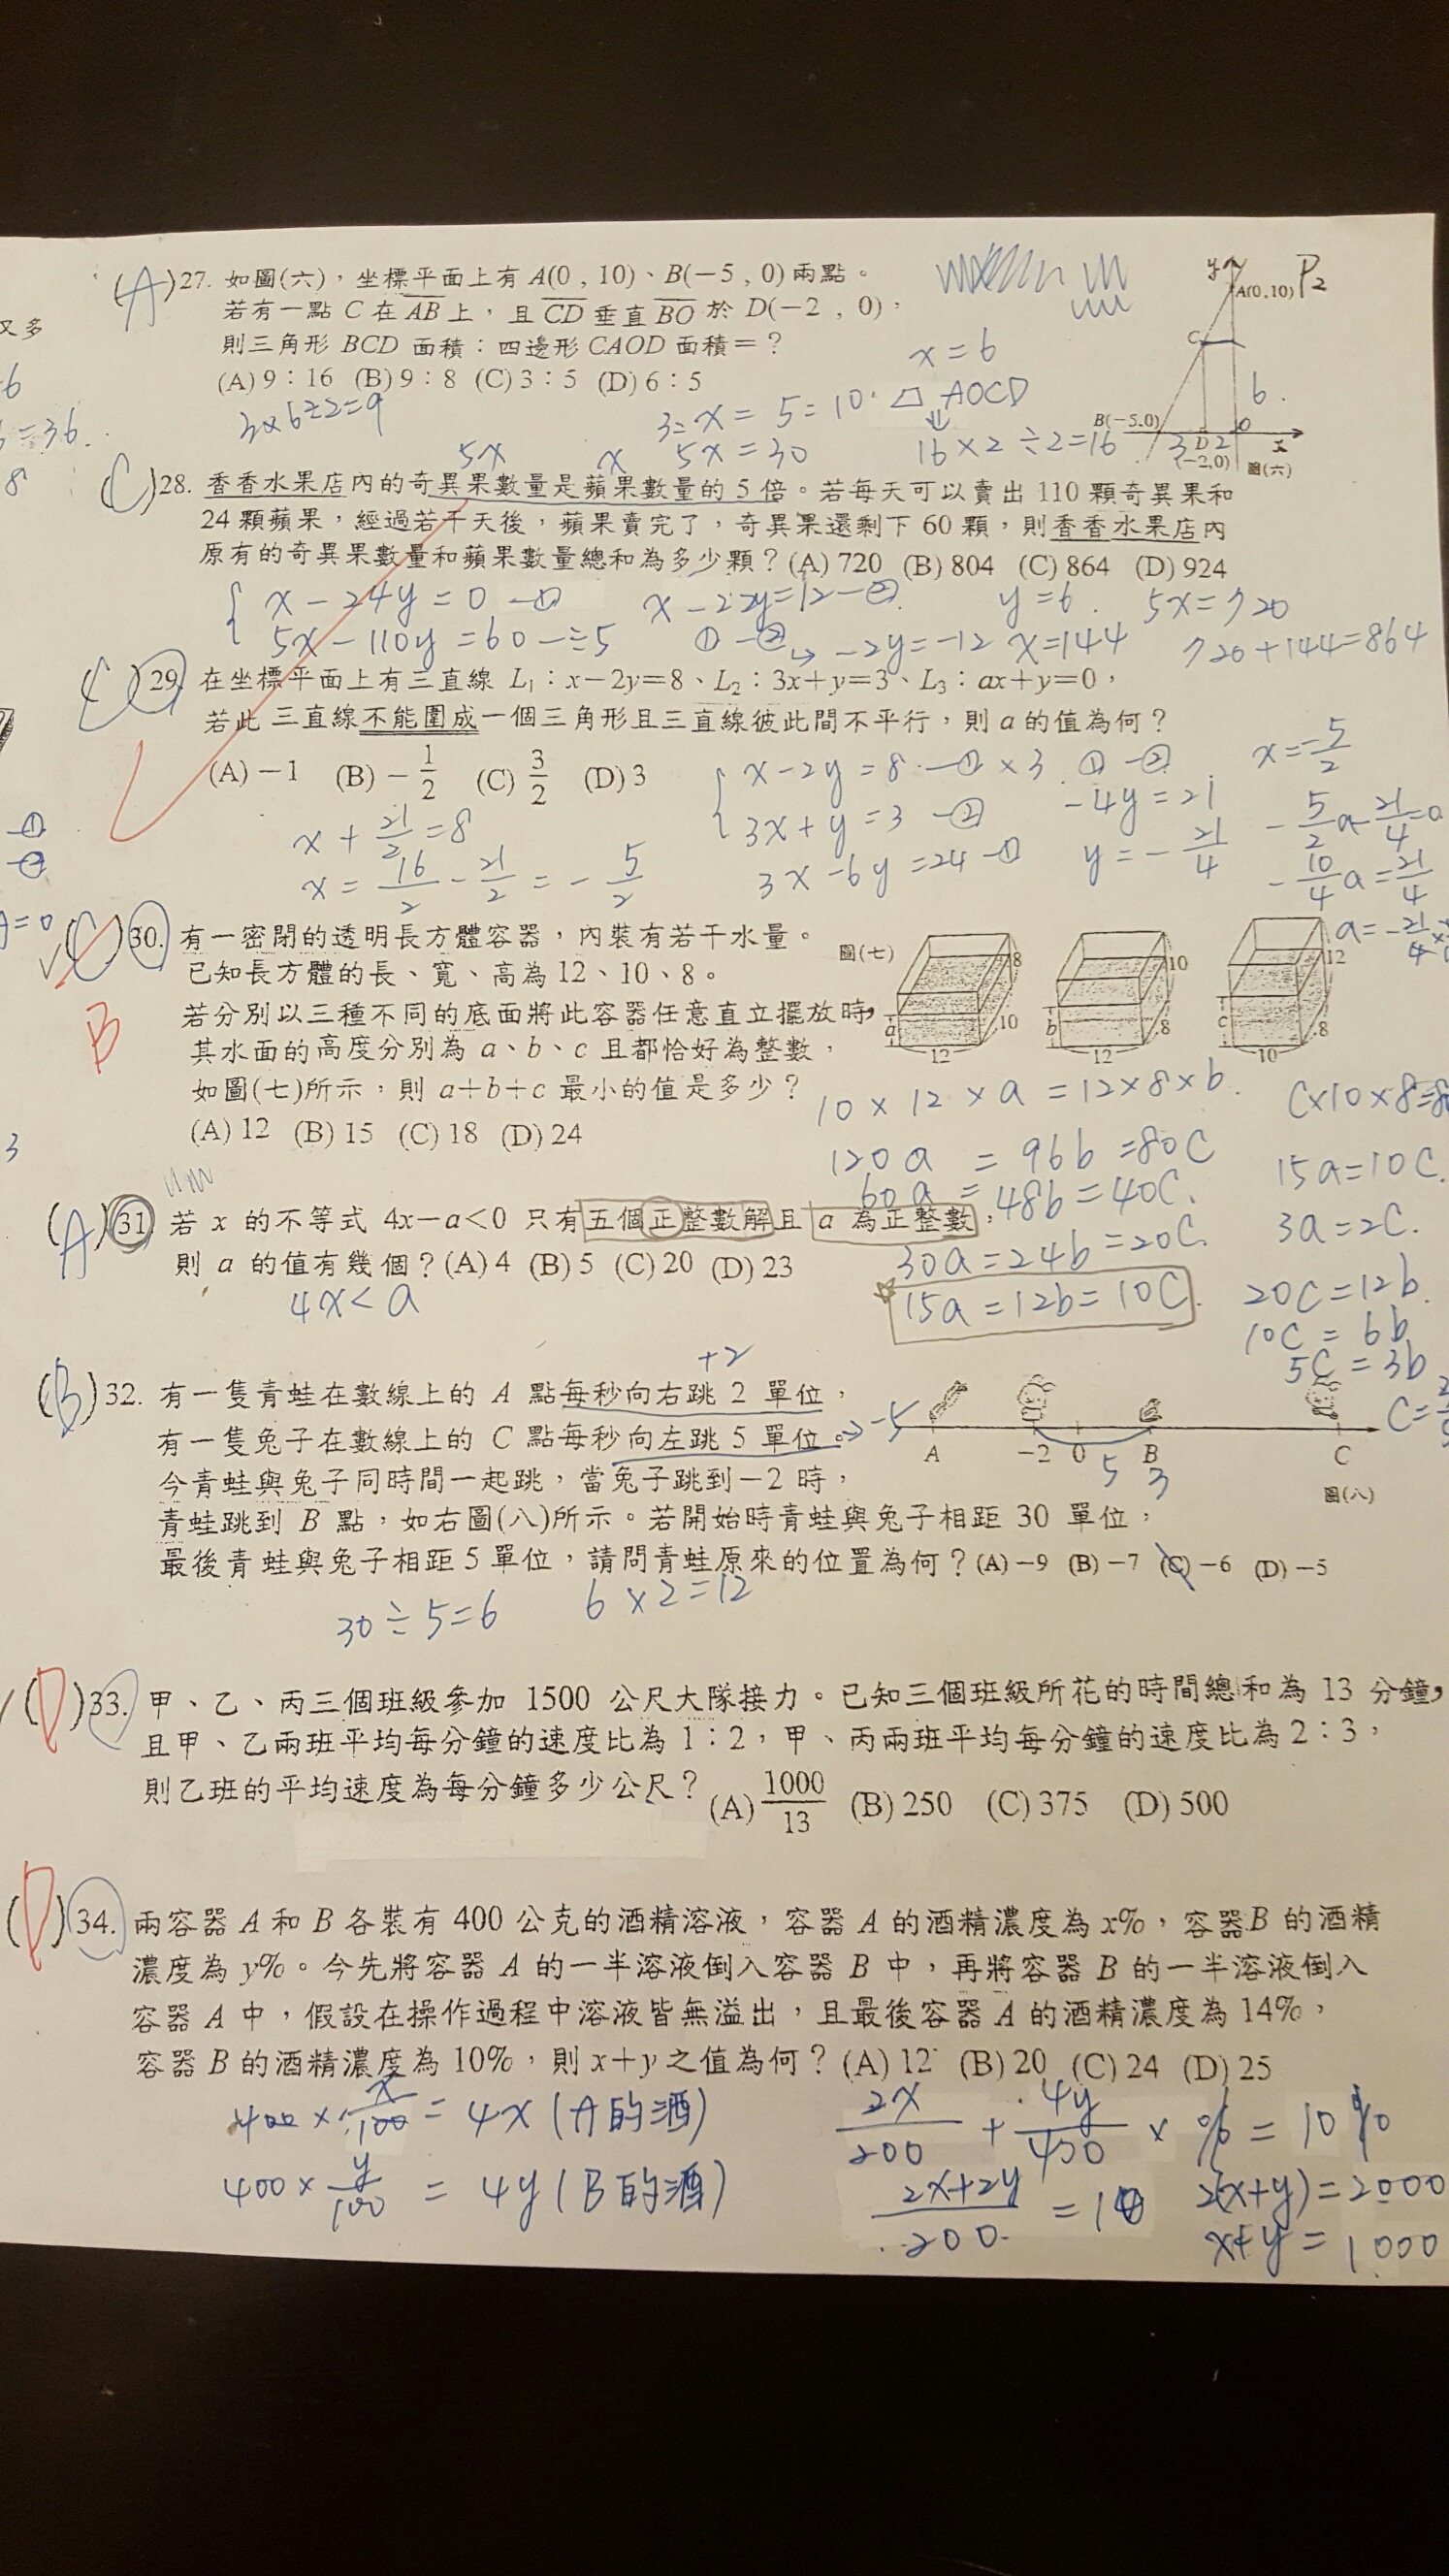 又多
6
3=36.
8
(A)27. 如圖(六)，坐標平面上有 A(0 , 10)、B(−5 , 0)兩點。
若有一點 C 在 AB 上，且 CD 垂直 BO 於 D(−2 , 0)，
則三角形 BCD 面積：四邊形 CAOD 面積＝？
(A) 9：16 (B) 9：8 (C) 3：5 (D) 6：5
3×6÷2=9
3=x = 5=10
5x=30
x=6
AOCD
16×2÷2=16
P2
y
A(0,10)
C
6
B(−5,0)
3 D 2
O
x
(−2,0)
圖(六)
5x x
(C)28. 香香水果店內的奇異果數量是蘋果數量的 5 倍。若每天可以賣出 110 顆奇異果和
24 顆蘋果，經過若干天後，蘋果賣完了，奇異果還剩下 60 顆，則香香水果店內
原有的奇異果數量和蘋果數量總和為多少顆？(A) 720 (B) 804 (C) 864 (D) 924
x−24y=0 −① x−22y=12−② y=6 5x=720
5x−110y=60−÷5 ①−② → −2y=−12 x=144 720+144=864
(C)29. 在坐標平面上有三直線 L₁：x−2y=8、L₂：3x+y=3、L₃：ax+y=0，
若此三直線不能圍成一個三角形且三直線彼此間不平行，則 a 的值為何？
(A) −1 (B) −1/2 (C) 3/2 (D) 3
x−2y=8−①×3 ①−② x=−5/2
3x+y=3−② −4y=21 −5/2a−21/4=0
3x−6y=24−① y=−21/4 −10/4a=21/4
x+21/2=8
x=16/2−21/2=−5/2
(C)30. 有一密閉的透明長方體容器，內裝有若干水量。
B
已知長方體的長、寬、高為 12、10、8。
若分別以三種不同的底面將此容器任意直立擺放時，
其水面的高度分別為 a、b、c 且都恰好為整數，
如圖(七)所示，則 a+b+c 最小的值是多少？
(A) 12 (B) 15 (C) 18 (D) 24
圖(七)
8 a 10 12
10 b 8 12
12 c 8 10
10×12×a=12×8×b
120a=96b=80C
60a=48b=40C
30a=24b=20C
15a=12b=10C
15a=10C
3a=2C
20C=12b
10C=6b
5C=3b
3
(A)31. 若 x 的不等式 4x−a<0 只有五個正整數解且 a 為正整數，
則 a 的值有幾個？(A) 4 (B) 5 (C) 20 (D) 23
4x<a
+2
(B)32. 有一隻青蛙在數線上的 A 點每秒向右跳 2 單位，
有一隻兔子在數線上的 C 點每秒向左跳 5 單位。→−5
今青蛙與兔子同時間一起跳，當兔子跳到−2 時，
青蛙跳到 B 點，如右圖(八)所示。若開始時青蛙與兔子相距 30 單位，
最後青蛙與兔子相距 5 單位，請問青蛙原來的位置為何？(A) −9 (B) −7 (C) −6 (D) −5
A −2 0 B C
5 3
圖(八)
30÷5=6 6×2=12
(D)33. 甲、乙、丙三個班級參加 1500 公尺大隊接力。已知三個班級所花的時間總和為 13 分鐘，
且甲、乙兩班平均每分鐘的速度比為 1：2，甲、丙兩班平均每分鐘的速度比為 2：3，
則乙班的平均速度為每分鐘多少公尺？(A) 1000/13 (B) 250 (C) 375 (D) 500
(D)34. 兩容器 A 和 B 各裝有 400 公克的酒精溶液，容器 A 的酒精濃度為 x%，容器 B 的酒精
濃度為 y%。今先將容器 A 的一半溶液倒入容器 B 中，再將容器 B 的一半溶液倒入
容器 A 中，假設在操作過程中溶液皆無溢出，且最後容器 A 的酒精濃度為 14%，
容器 B 的酒精濃度為 10%，則 x+y 之值為何？(A) 12 (B) 20 (C) 24 (D) 25
400×x/100=4x(A的酒)
400×y/100=4y(B的酒)
2x/200+4y/400×%=10%
2x+2y/200=10
2(x+y)=2000
x+y=1000